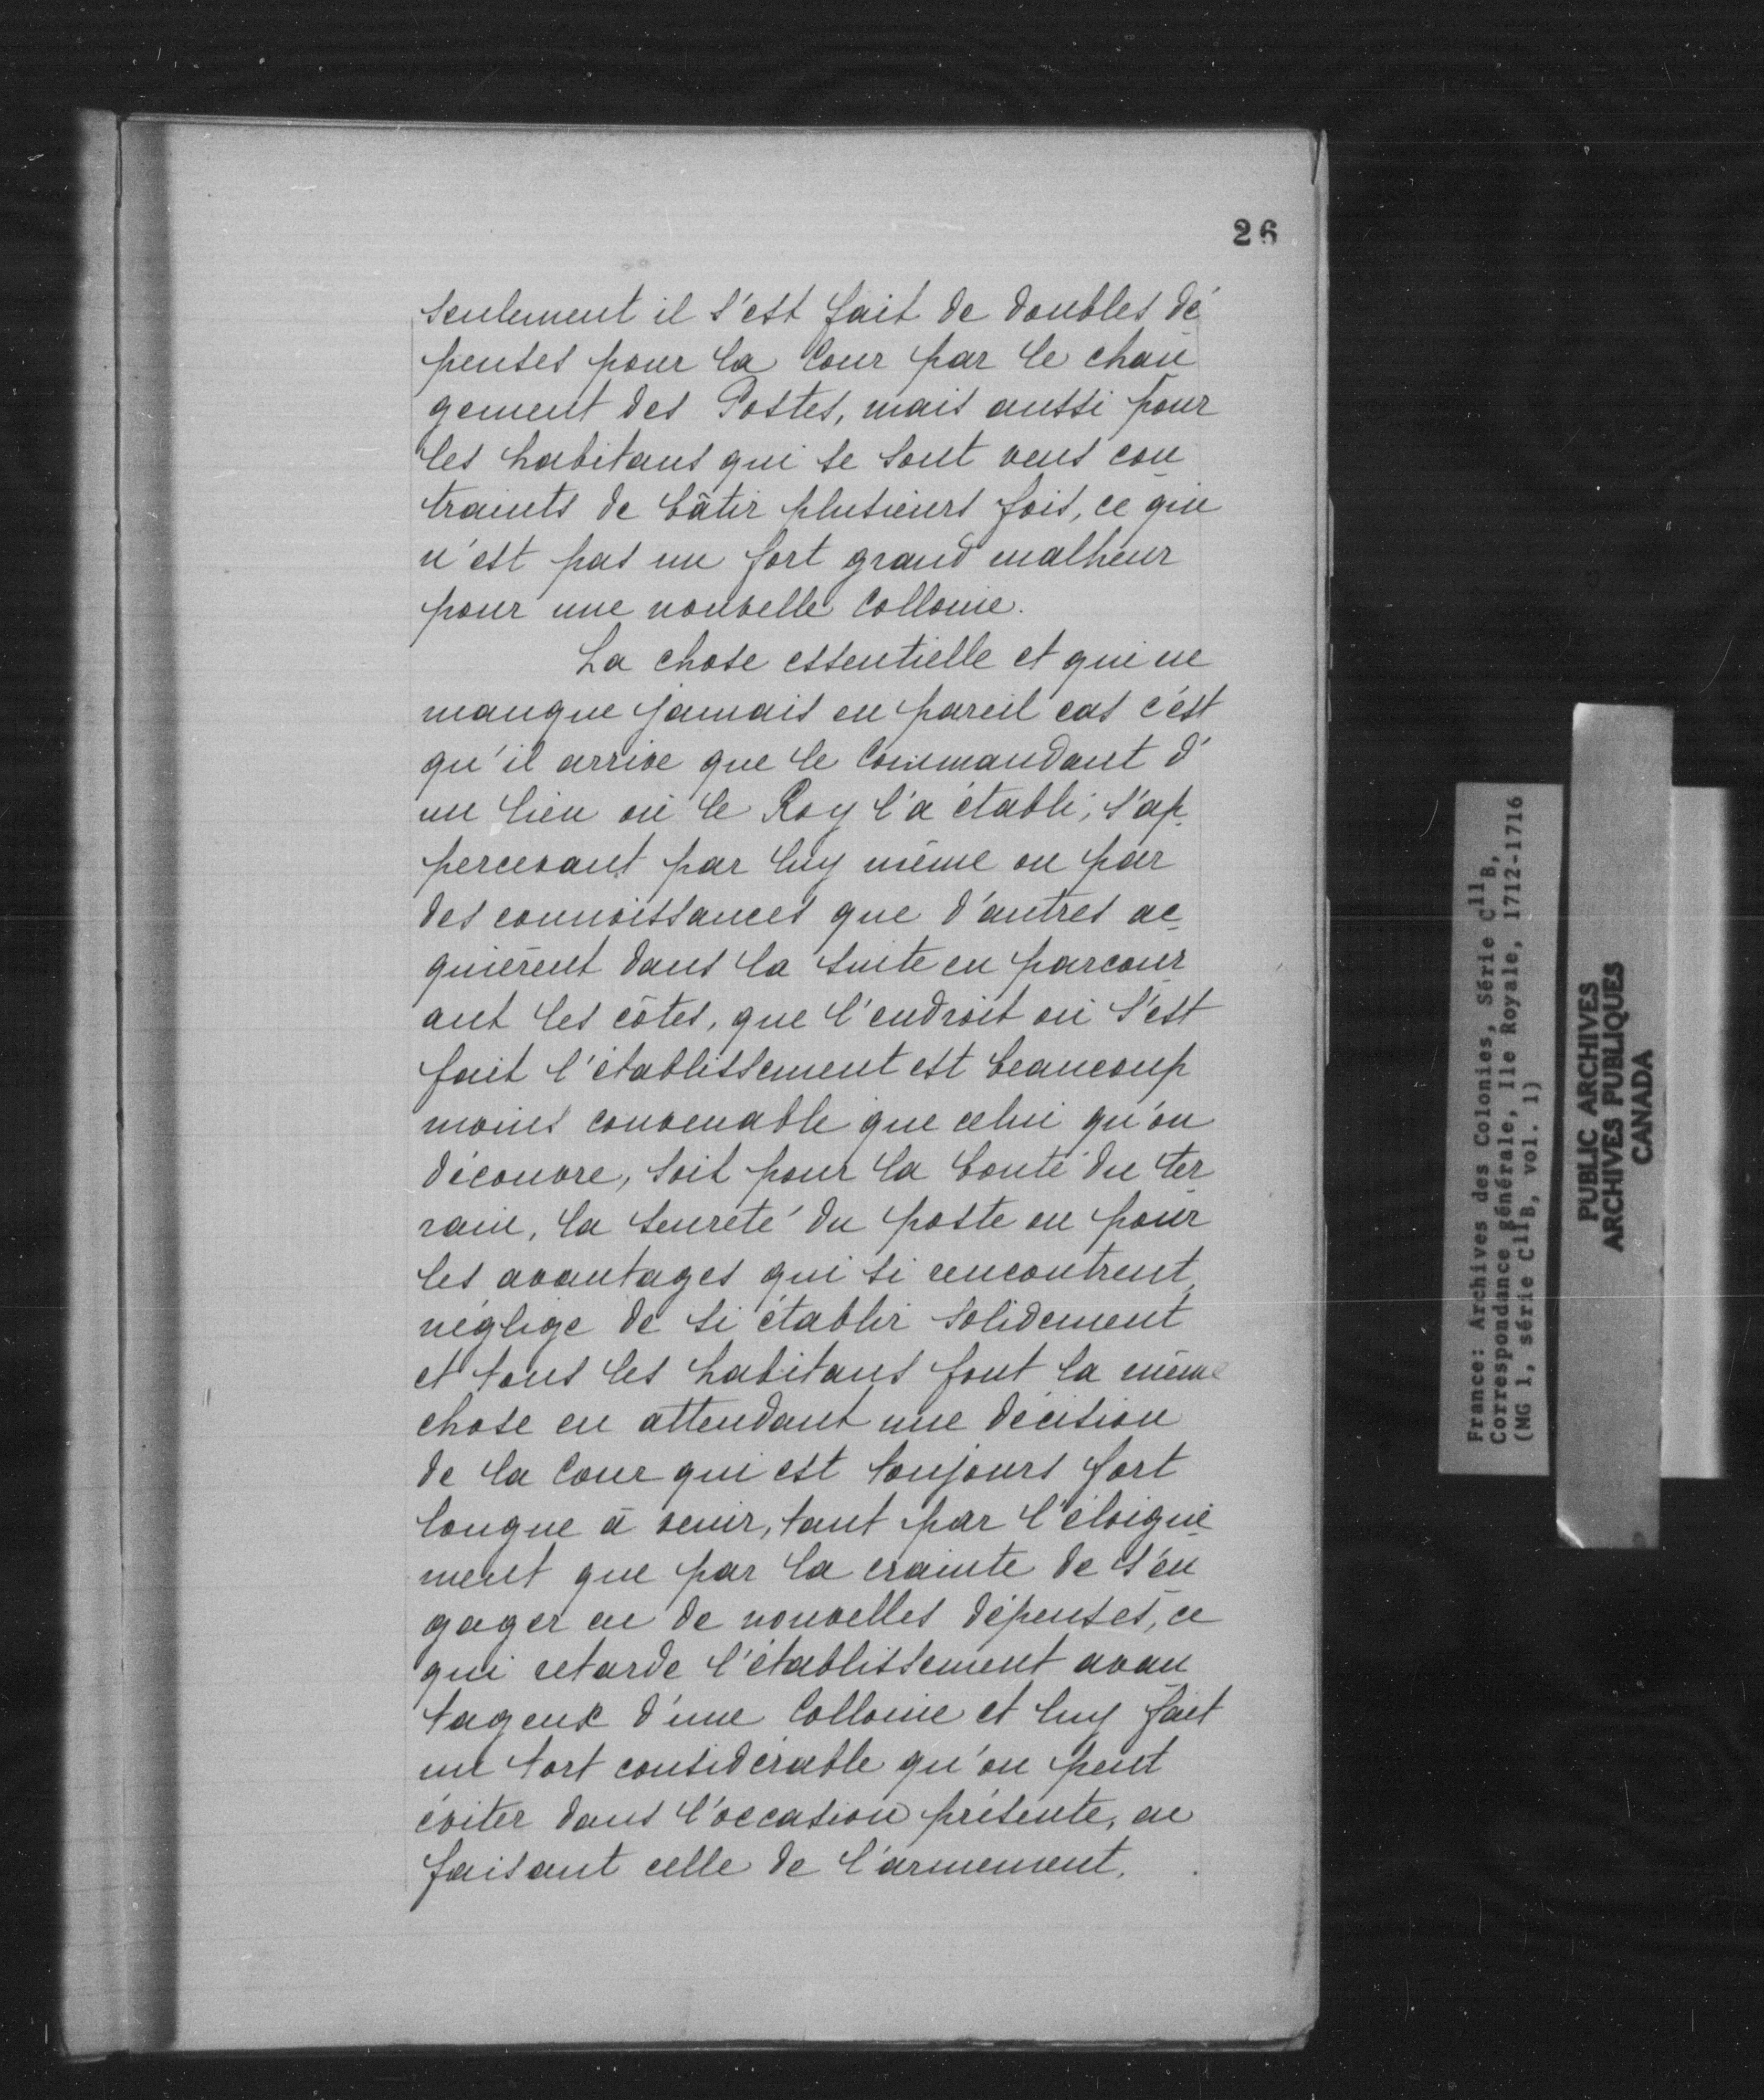 26
seulement il s'est fait de doubles dé
penses pour la Cour par le chan
gement des Postes, mais aussi pour
les habitans qui se sont veus con
traints de bâtir plusieurs fois, ce qui
n'est pas un fort grand malheur
pour une nouvelle Collonie.
La chose essentielle et qui ne
manque jamais en pareil cas c'est
qu'il arrive que le Commandant d'
un lieu où le Roy l'a établi, s'ap
percevant par luy même ou par
des connoissances que d'autres ac
quièrent dans la suite en parcour
ant les côtes, que l'endroit où s'est
fait l'établissement est beaucoup
moins convenable que celui qu'on
découvre, soit pour la bonté du ter
rain, la seureté du poste ou pour
les avantages qui si rencontrent,
néglige de si établir solidement
et tous les habitans font la même
chose en attendant une décision
de la Cour qui est toujours fort
longue à venir, tant par l'éloigne
ment que par la crainte de s'en
gager en de nouvelles dépenses, ce
qui retarde l'établissement avan
tageux d'une Collonie et luy fait
un tort considérable qu'on peut
éviter dans l'occasion présente, en
faisant celle de l'armement.
France: Archives des Colonies, Série C11B,
Correspondance générale, Ile Royale, 1712-1716
(MG 1, série C11B, vol. 1)
PUBLIC ARCHIVES
ARCHIVES PUBLIQUES
CANADA